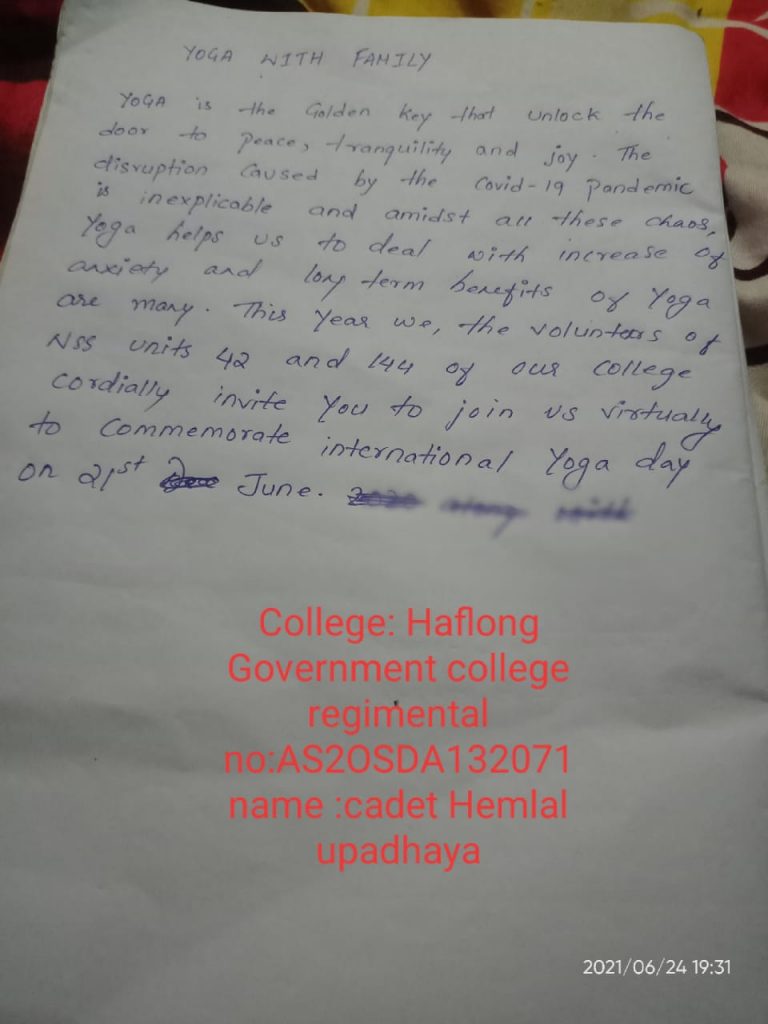 YOGA WITH FAMILY
YOGA is the Golden key that unlock the
door to peace, tranquility and joy. The
disruption caused by the Covid-19 pandemic
is inexplicable and amidst all these chaos,
Yoga helps us to deal with increase of
anxiety and long term benefits of Yoga
are many. This Year we, the volunteers of
NSS units 42 and 144 of our college
cordially invite You to join us virtually
to commemorate international Yoga day
on 21st June.
College: Haflong
Government college
regimental
no:AS2OSDA132071
name :cadet Hemlal
upadhaya
2021/06/24 19:31